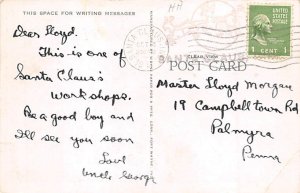 THIS SPACE FOR WRITING MESSAGES
Dear Lloyd.
This is one of
Santa Claus's
Workshops.
Be a good boy and
I'll see you soon
Love
Uncle George
HH
SANTA CLAUS
CLEAR VIEW
POST CARD
UNITED STATES
POSTAGE
1 CENT 1
Master Lloyd Morgan
19 Campbelltown Rd
Palmyra
Penna